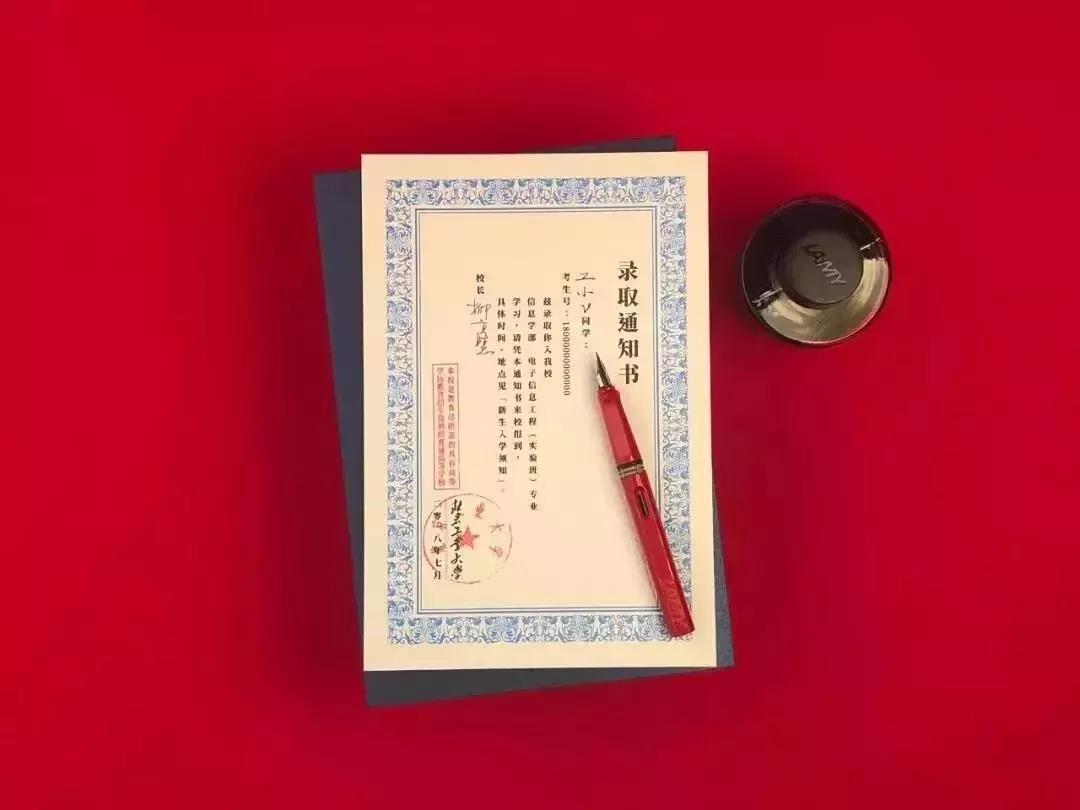 录取通知书
工小飞同学：
考生号：18000000000000
兹录取你入我校
信息学部 电子信息工程（实验班）专业
学习，请凭本通知书来校报到，
具体时间、地点见「新生入学须知」。
校长
本校是教育部批准的具有高等
学历教育招生资格的普通高等学校
北京工业大学
二零一八年七月
LAMY
LAMY